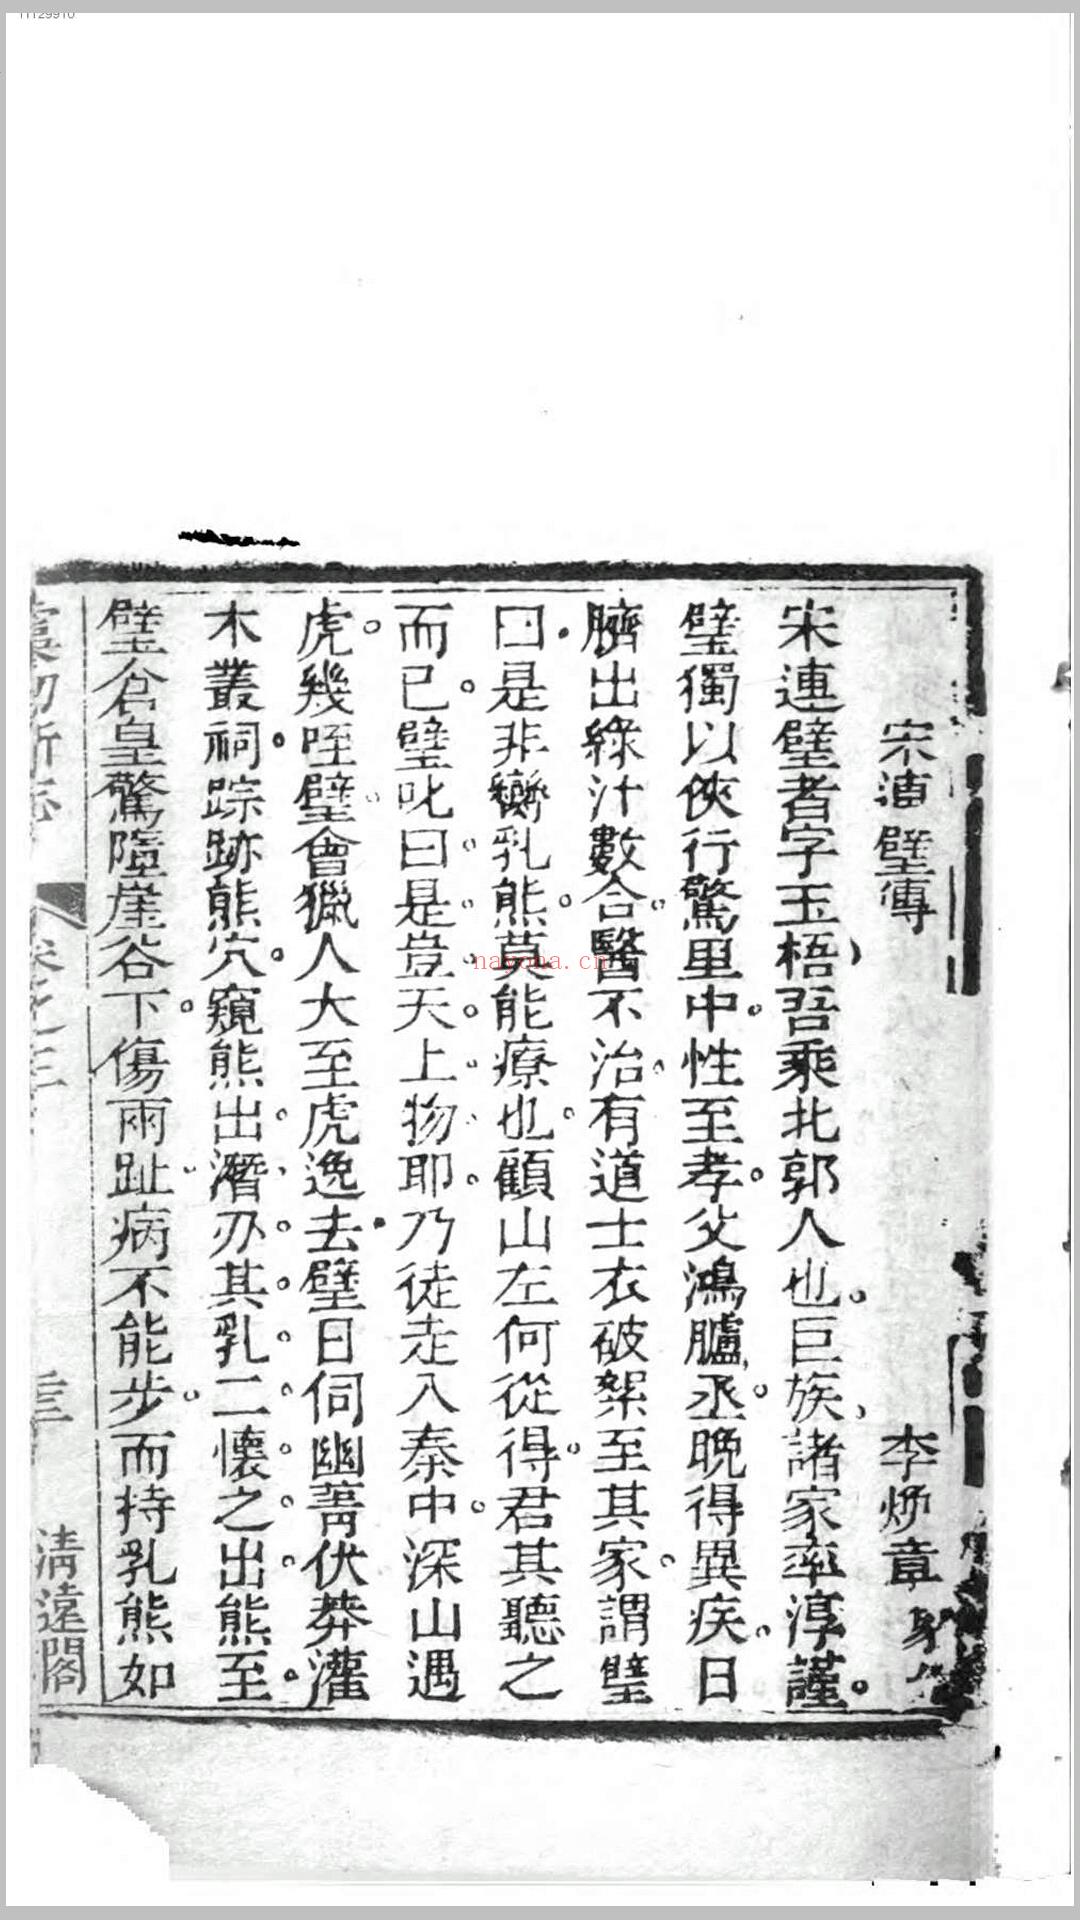 宋連璧傳
李煥章
宋連璧者字玉梧吾乘北郭人也巨族諸家率淳謹
璧獨以俠行驚里中性至孝父鴻臚丞晚得異疾日
臍出綠汁數合醫不治有道士衣破絮至其家謂璧
曰是非臠乳熊莫能療也顧山左何從得君其聽之
而已璧叱曰是豈天上物耶乃徒走入秦中深山遇
虎幾咥璧會獵人大至虎逸去璧日伺幽菁伏莽灌
木叢祠踪跡熊穴窺熊出潛刅其乳二懷之出熊至
璧倉皇驚墮崖谷下傷兩趾病不能步而持乳熊如
虞初新志
卷之三
清遠閣
nayona.cn